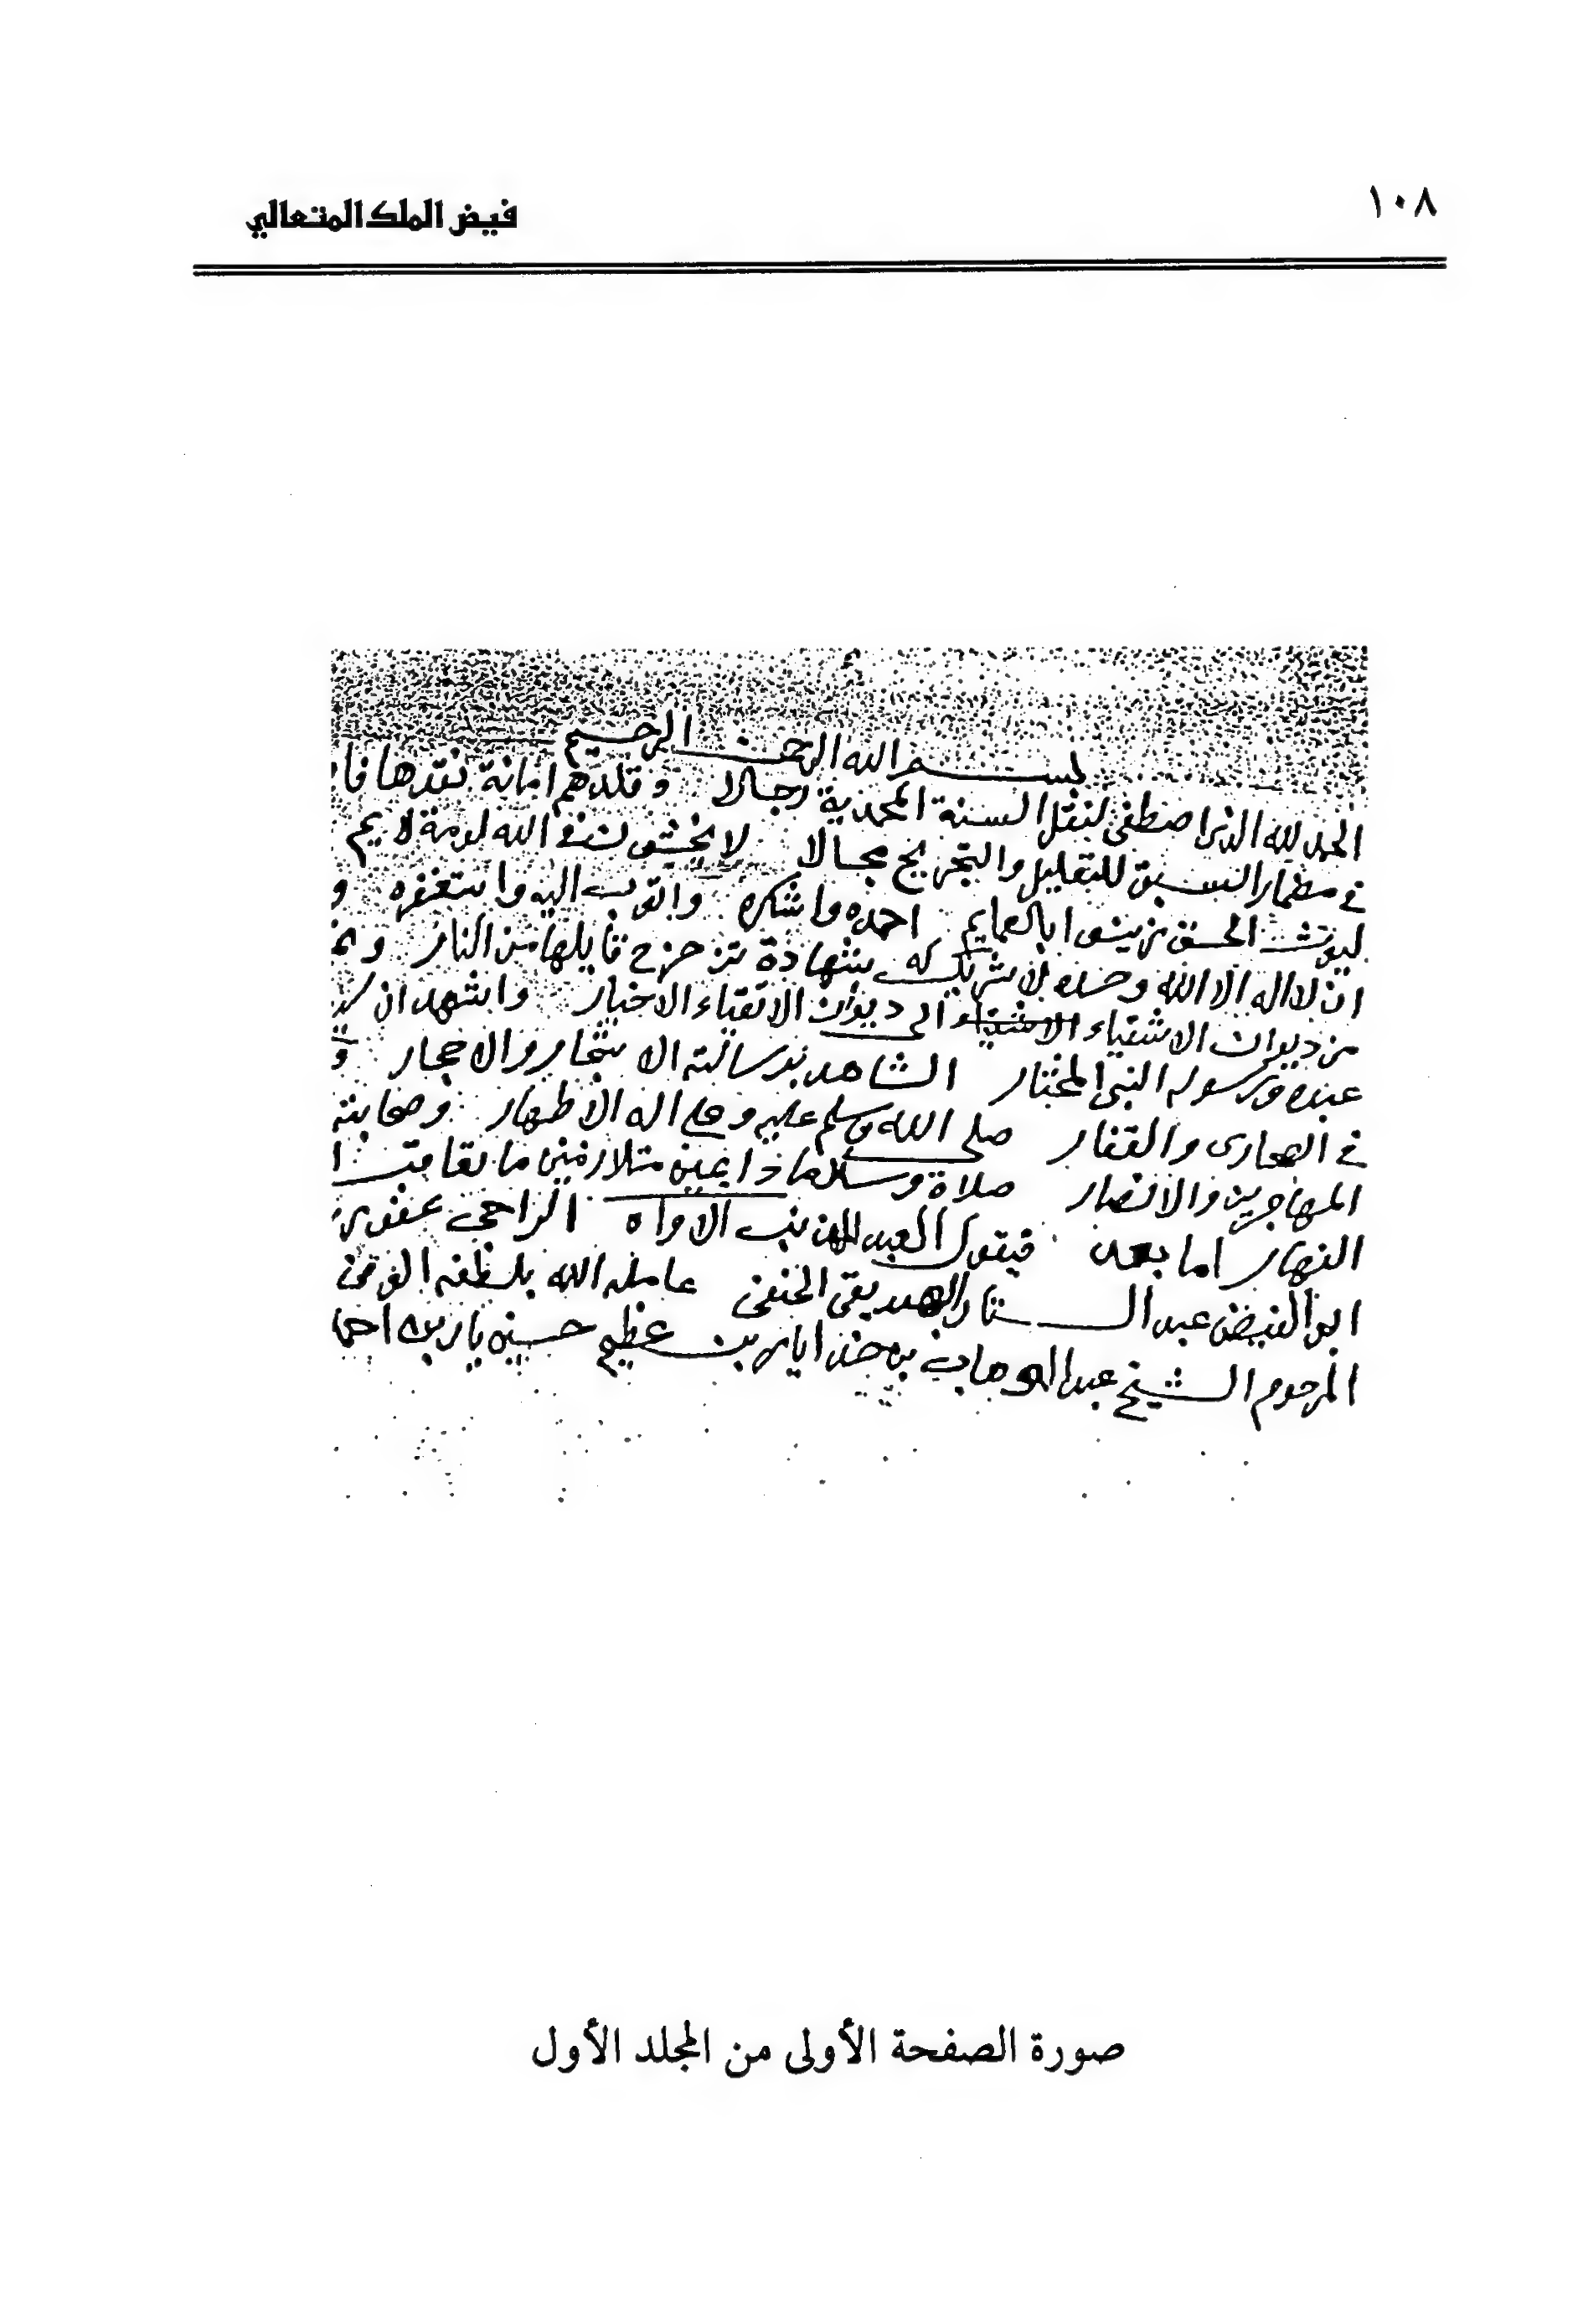 ١٠٨
فيض الملك المتعالي
بسم الله الرحمن الرحيم
الحمد لله الذي اصطفى لنقل السنة المحمدية رجالا وقلدهم امانة نقدها
في مضمار السبق للتعليل والتجريح مجالا لا يخشون في الله لومة لايم
ليوث الحق تزينوا بالعمايم احمده واشكره واتوب اليه واستغفره و
ان لا اله الا الله وحده لا شريك له شهادة تزحزح قايلها من النار
من ديوان الاشقياء الى ديوان الاتقياء الاخيار واشهد ان
عبده ورسوله النبي المختار الشاهد برسالته الاشجار والاحجار و
في الصحارى والقفار صلى الله وسلم عليه وعلى اله الاطهار وصحابته
المهاجرين والانصار صلاة وسلاما دايمين متلازمين ما تعاقبت ا
النهار اما بعد فيقول العبد المذنب الاواه الراجي عفو
ابو الفيض عبد الستار الصديقي الحنفي عامله الله بلطفه
المرحوم الشيخ عبد الوهاب بن خدايار بن عظيم حسين يار بن
صورة الصفحة الأولى من المجلد الأول